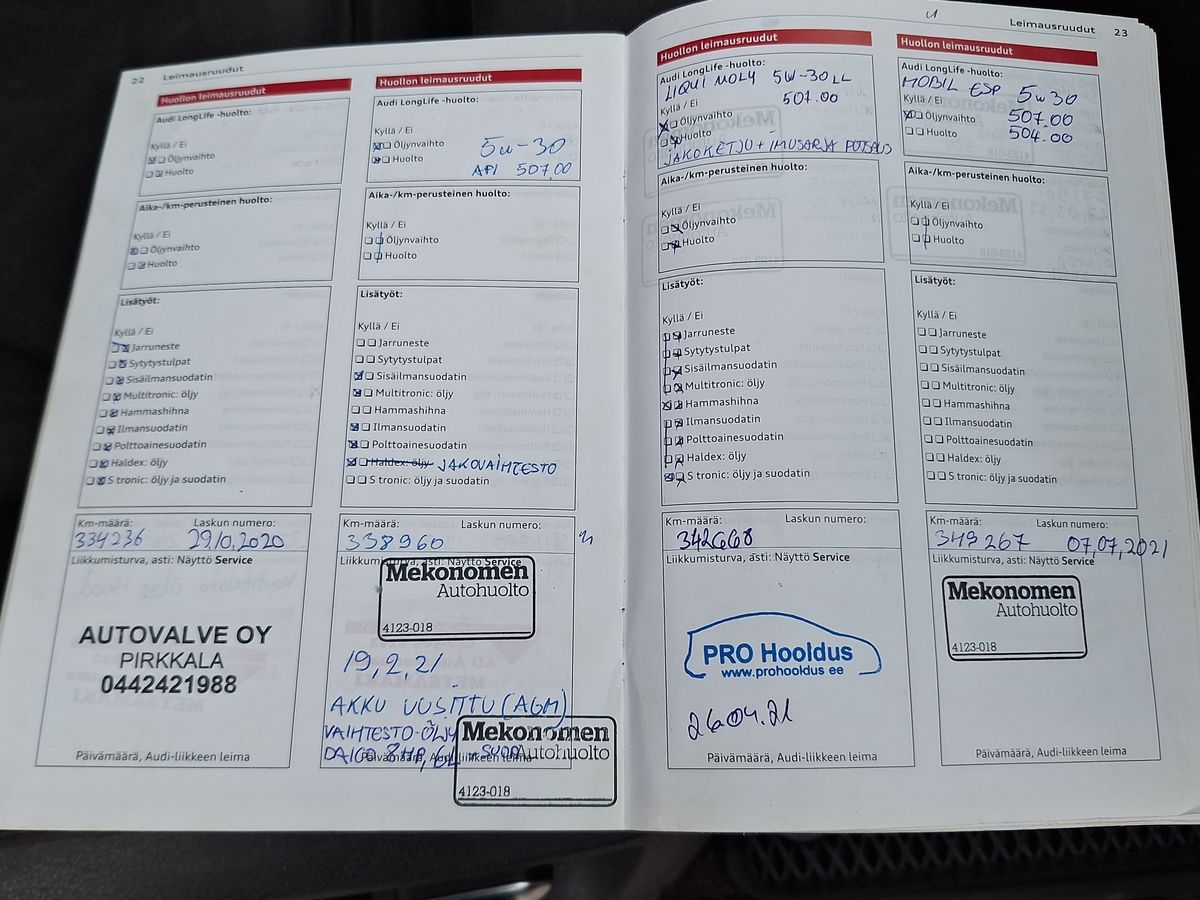 22 Leimausruudut
Huollon leimausruudut
Audi LongLife -huolto:
Kyllä / Ei
Öljynvaihto
Huolto
Aika-/km-perusteinen huolto:
Kyllä / Ei
Öljynvaihto
Huolto
Lisätyöt:
Kyllä / Ei
Jarruneste
Sytytystulpat
Sisäilmansuodatin
Multitronic: öljy
Hammashihna
Ilmansuodatin
Polttoainesuodatin
Haldex: öljy
S tronic: öljy ja suodatin
Km-määrä: Laskun numero:
334236 29.10.2020
Liikkumisturva, asti: Näyttö Service
AUTOVALVE OY
PIRKKALA
0442421988
Päivämäärä, Audi-liikkeen leima
Huollon leimausruudut
Audi LongLife -huolto:
Kyllä / Ei
Öljynvaihto
Huolto
5W-30
API 507 00
Aika-/km-perusteinen huolto:
Kyllä / Ei
Öljynvaihto
Huolto
Lisätyöt:
Kyllä / Ei
Jarruneste
Sytytystulpat
Sisäilmansuodatin
Multitronic: öljy
Hammashihna
Ilmansuodatin
Polttoainesuodatin
Haldex: öljy JAKOVAIHTESTO
S tronic: öljy ja suodatin
Km-määrä: Laskun numero:
338960
Liikkumisturva, asti: Näyttö Service
Mekonomen
Autohuolto
4123-018
19.2.21
AKKU UUSITTU (AGM)
VAIHTESTO-ÖLJY
Mekonomen
Autohuolto
4123-018
Päivämäärä, Audi-liikkeen leima
Leimausruudut 23
Huollon leimausruudut
Audi LongLife -huolto:
LIQUI MOLY 5W-30 LL
507.00
Kyllä / Ei
Öljynvaihto
Huolto
JAKOKETJU + IMUSARJA PUTSAUS
Aika-/km-perusteinen huolto:
Kyllä / Ei
Öljynvaihto
Huolto
Lisätyöt:
Kyllä / Ei
Jarruneste
Sytytystulpat
Sisäilmansuodatin
Multitronic: öljy
Hammashihna
Ilmansuodatin
Polttoainesuodatin
Haldex: öljy
S tronic: öljy ja suodatin
Km-määrä: Laskun numero:
342668
Liikkumisturva, asti: Näyttö Service
PRO Hooldus
www.prohooldus.ee
26.04.21
Päivämäärä, Audi-liikkeen leima
Huollon leimausruudut
Audi LongLife -huolto:
MOBIL ESP 5W30
Kyllä / Ei
Öljynvaihto
Huolto
507.00
504.00
Aika-/km-perusteinen huolto:
Kyllä / Ei
Öljynvaihto
Huolto
Lisätyöt:
Kyllä / Ei
Jarruneste
Sytytystulpat
Sisäilmansuodatin
Multitronic: öljy
Hammashihna
Ilmansuodatin
Polttoainesuodatin
Haldex: öljy
S tronic: öljy ja suodatin
Km-määrä: Laskun numero:
349267 07.07.2021
Liikkumisturva, asti: Näyttö Service
Mekonomen
Autohuolto
4123-018
Päivämäärä, Audi-liikkeen leima